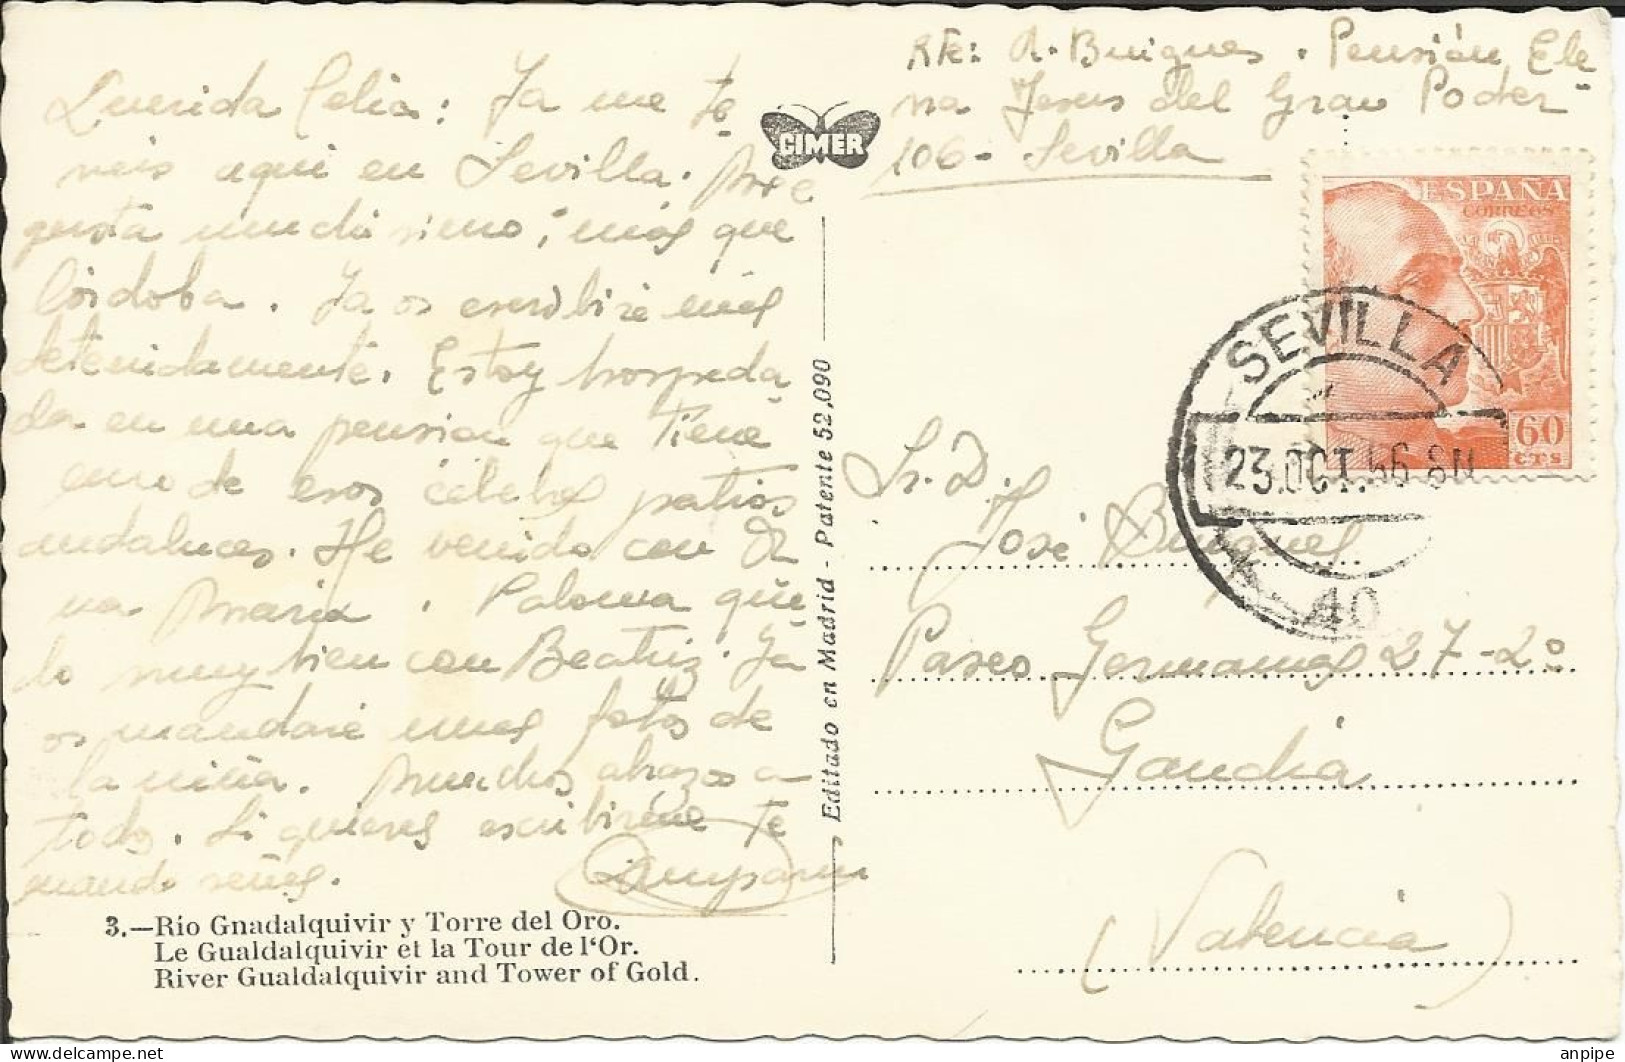 Querida Celia: Ya me te-
neis aqui en Sevilla. Me
gusta muchisimo, más que
Córdoba. Ya os escribiré más
detenidamente. Estoy hospeda-
da en una pension que tiene
uno de esos célebres patios
andaluces. He venido con
na Maria. Paloma que-
do muy bien con Beatriz. Ya
os mandaré unas fotos de
la niña. Muchos abrazos a
todos. Si quieres escribirme te
mando señas.
Amparin
3.—Rio Gnadalquivir y Torre del Oro.
Le Gualdalquivir et la Tour de l'Or.
River Gualdalquivir and Tower of Gold.
CIMER
Editado en Madrid - Patente 52.090
Rte: A. Buigues. Pensión Ele-
na Jesus del Gran Poder
106 - Sevilla
ESPAÑA
CORREOS
60
CTS
SEVILLA
23.OCT.56.8N
40
Sr. D.
José Buigues
Paseo Germanias 27-2º
Gandia
(Valencia)
anpipe